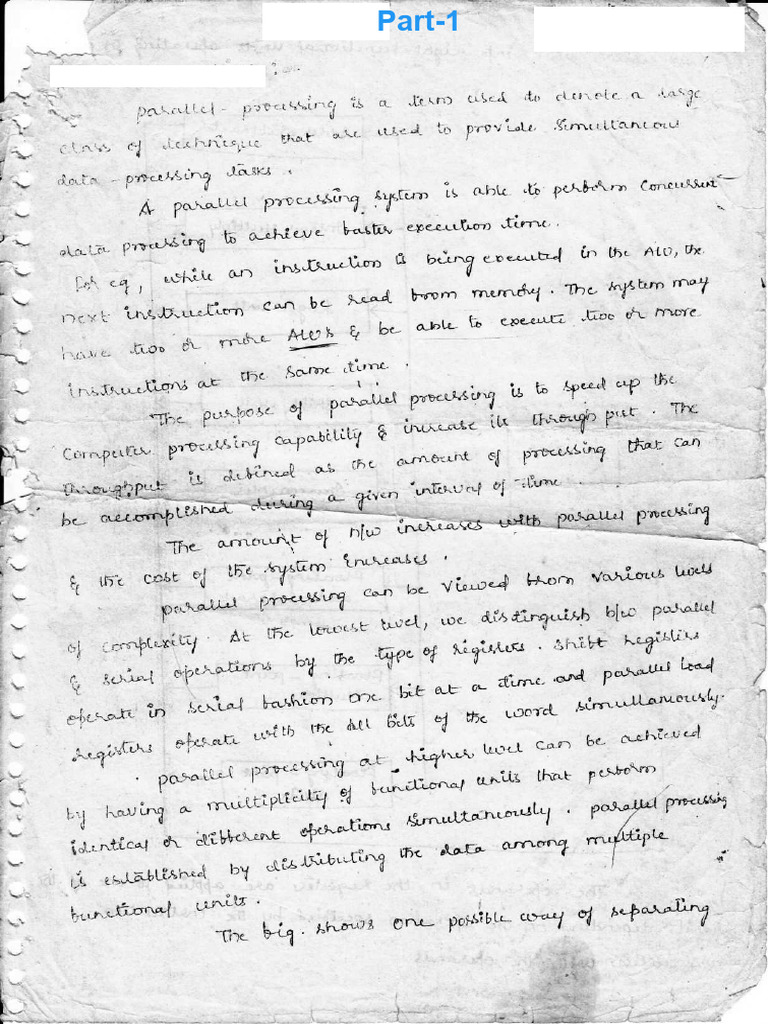 Part-1
parallel - processing is a term used to denote a large
class of technique that are used to provide simultaneous
data - processing tasks.
A parallel processing system is able to perform concurrent
data processing to achieve faster execution time.
for eg, while an instruction is being executed in the ALU, the
next instruction can be read from memory. The system may
have two or more ALU's & be able to execute two or more
instructions at the same time.
The purpose of parallel processing is to speed up the
computer processing capability & increase its through put. The
throughput is defined as the amount of processing that can
be accomplished during a given interval of time.
The amount of H/w increases with parallel processing
& the cost of the system increases.
parallel processing can be viewed from various levels
of complexity. At the lowest level, we distinguish b/w parallel
& serial operations by the type of registers. shift registers
operate in serial fashion one bit at a time and parallel load
registers operate with the all bits of the word simultaneously.
parallel processing at higher level can be achieved
by having a multiplicity of functional units that perform
identical or different operations simultaneously. parallel processing
is established by distributing the data among multiple
functional units.
The fig. shows one possible way of separating